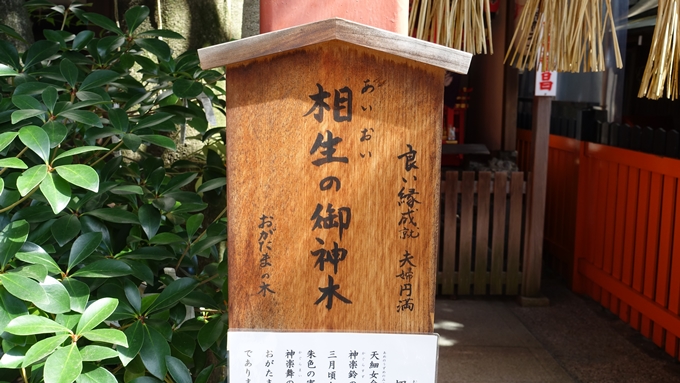 良い縁成就 夫婦円満
あいおい
相生の御神木
おがたまの木
天細女命
神楽鈴の
三月頃
朱色の実
神楽舞の
おがたま
であります